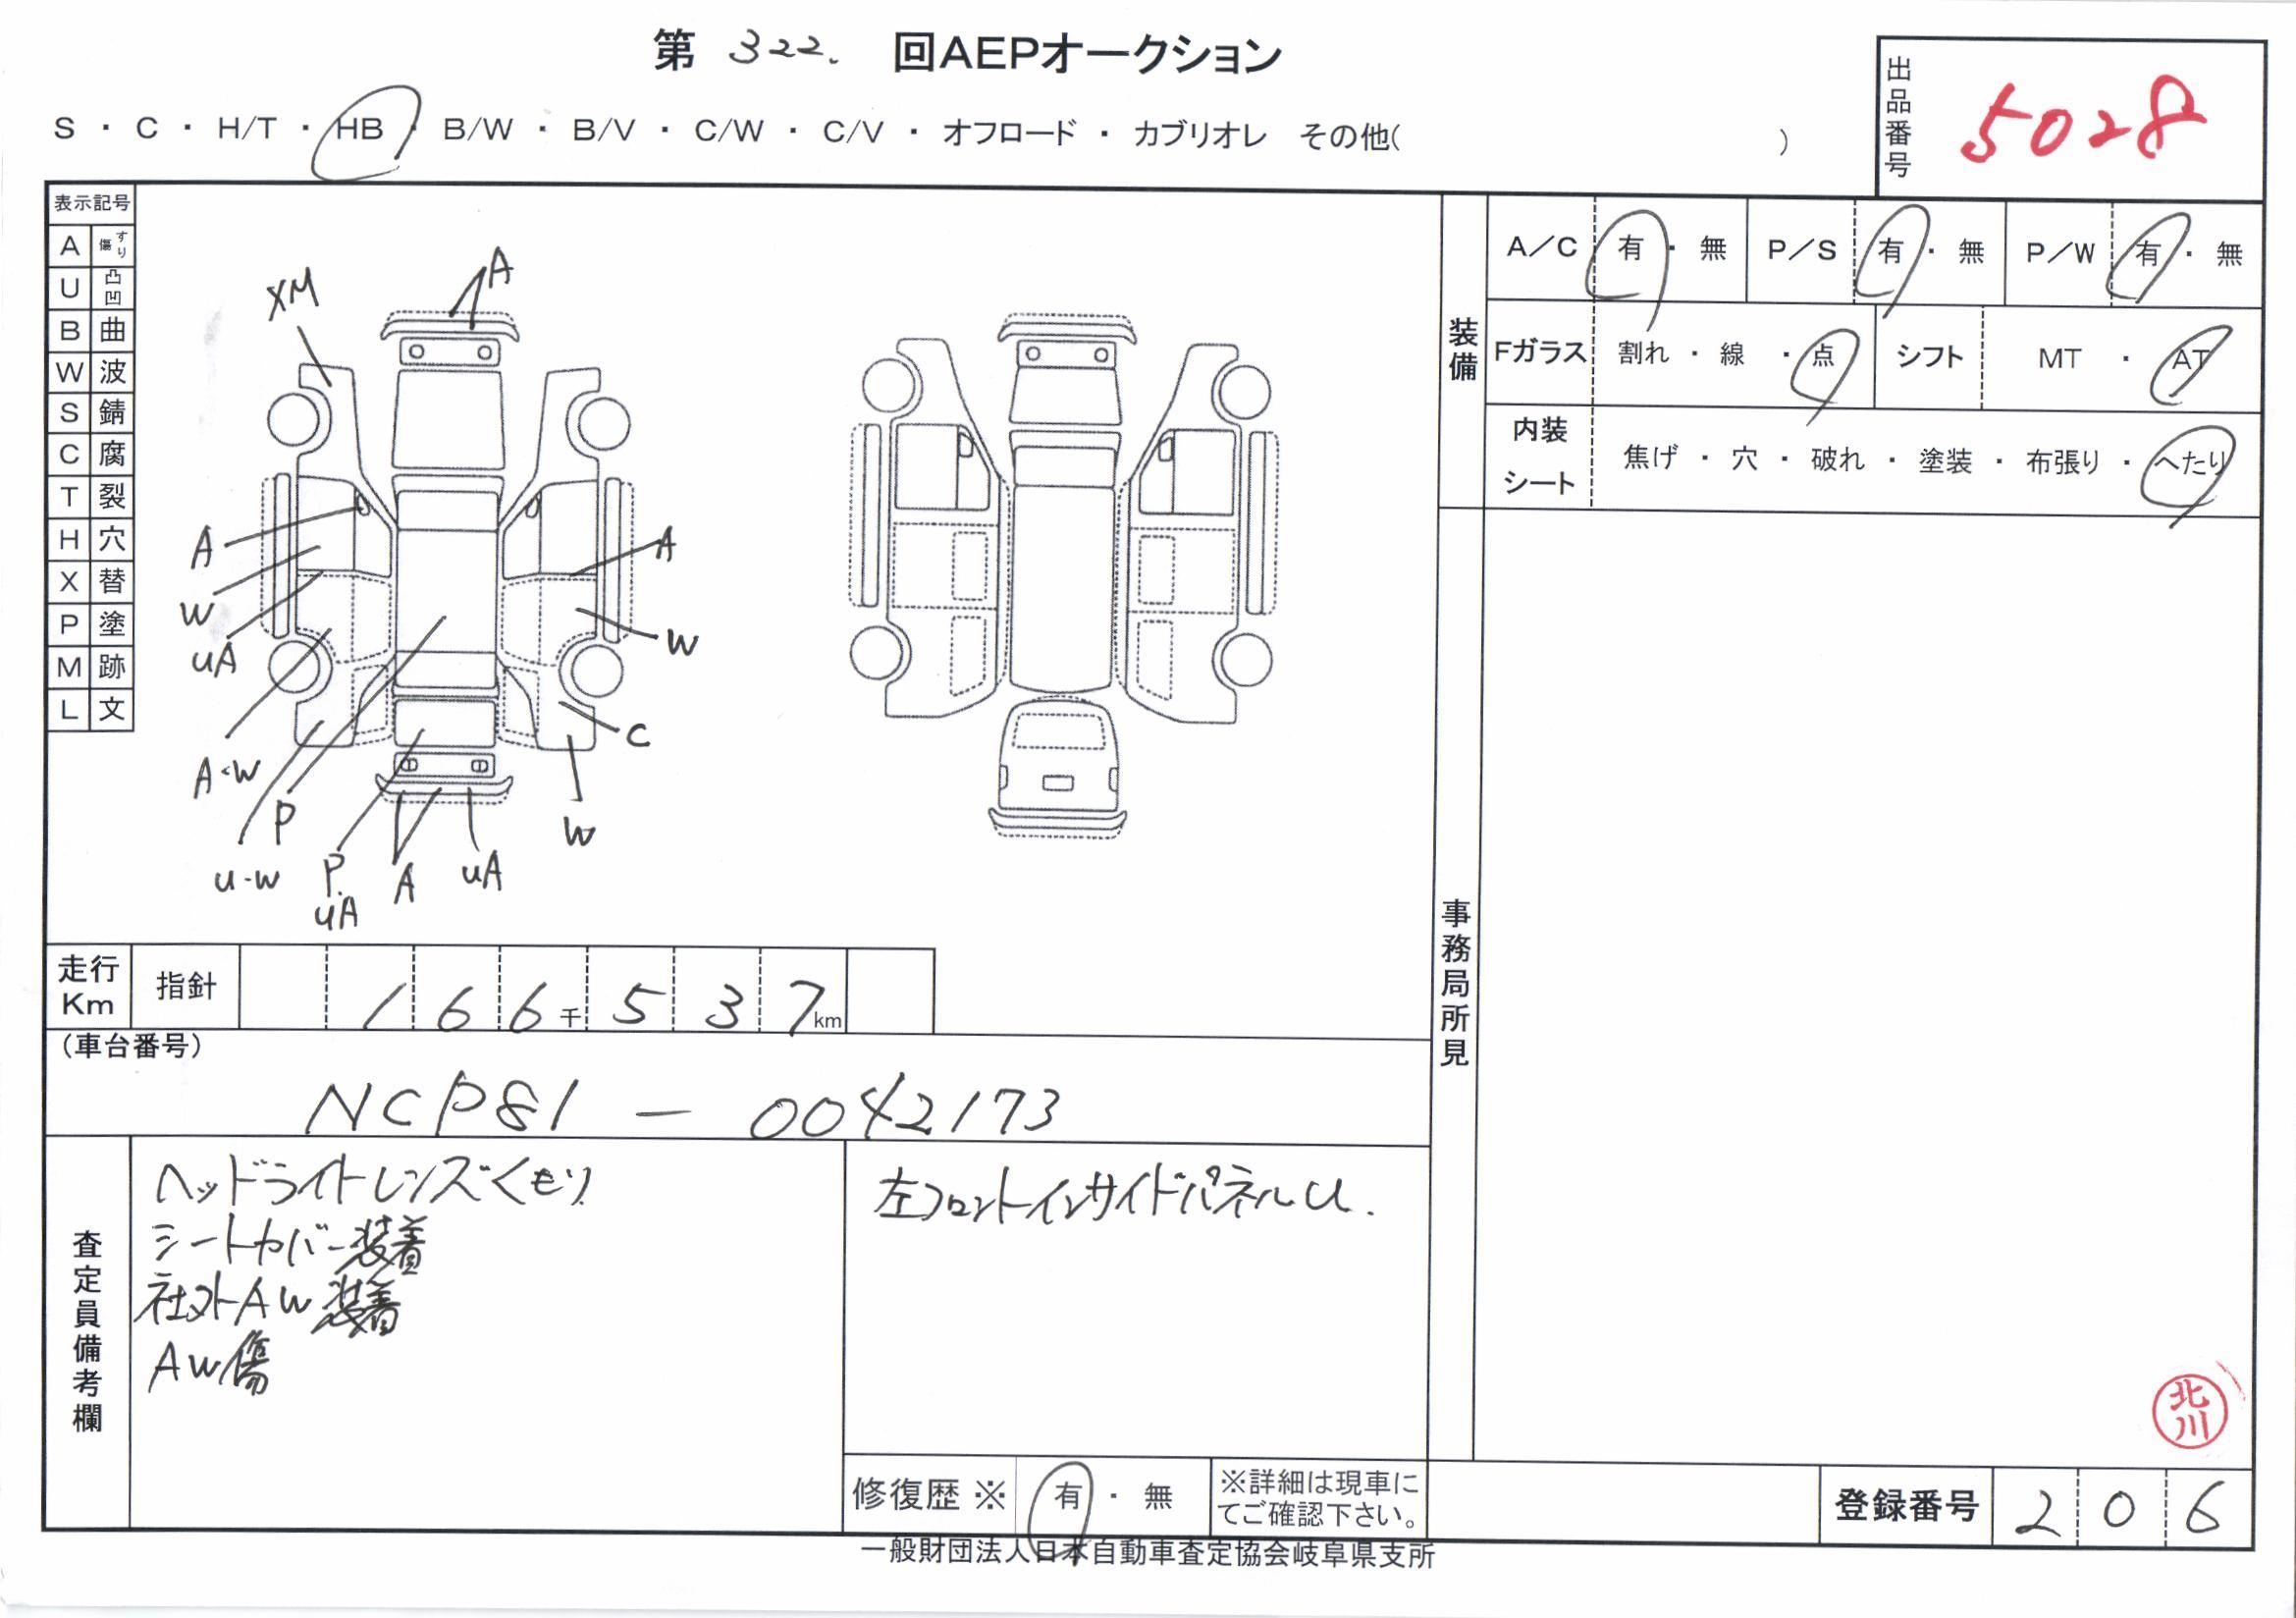 第 322. 回AEPオークション
S ・ C ・ H/T ・ HB ・ B/W ・ B/V ・ C/W ・ C/V ・ オフロード ・ カブリオレ その他( )
出品番号 5028
表示記号
A すり傷
U 凸凹
B 曲
W 波
S 錆
C 腐
T 裂
H 穴
X 替
P 塗
M 跡
L 文
A
XM
A
W
UA
A・W
U・W
P
P.
UA
A
UA
W
C
W
A
装備
A/C 有 ・ 無 P/S 有 ・ 無 P/W 有 ・ 無
Fガラス 割れ ・ 線 ・ 点 シフト MT ・ AT
内装シート 焦げ ・ 穴 ・ 破れ ・ 塗装 ・ 布張り ・ へたり
事務局所見
走行Km 指針 166千537km
(車台番号)
NCP81-0042173
査定員備考欄
ヘッドライトレンズくもり
シートカバー装着
社外AW装着
AW傷
左フロントインサイドパネルU.
修復歴 ※ 有 ・ 無 ※詳細は現車に
てご確認下さい。
北川
登録番号 206
一般財団法人日本自動車査定協会岐阜県支所